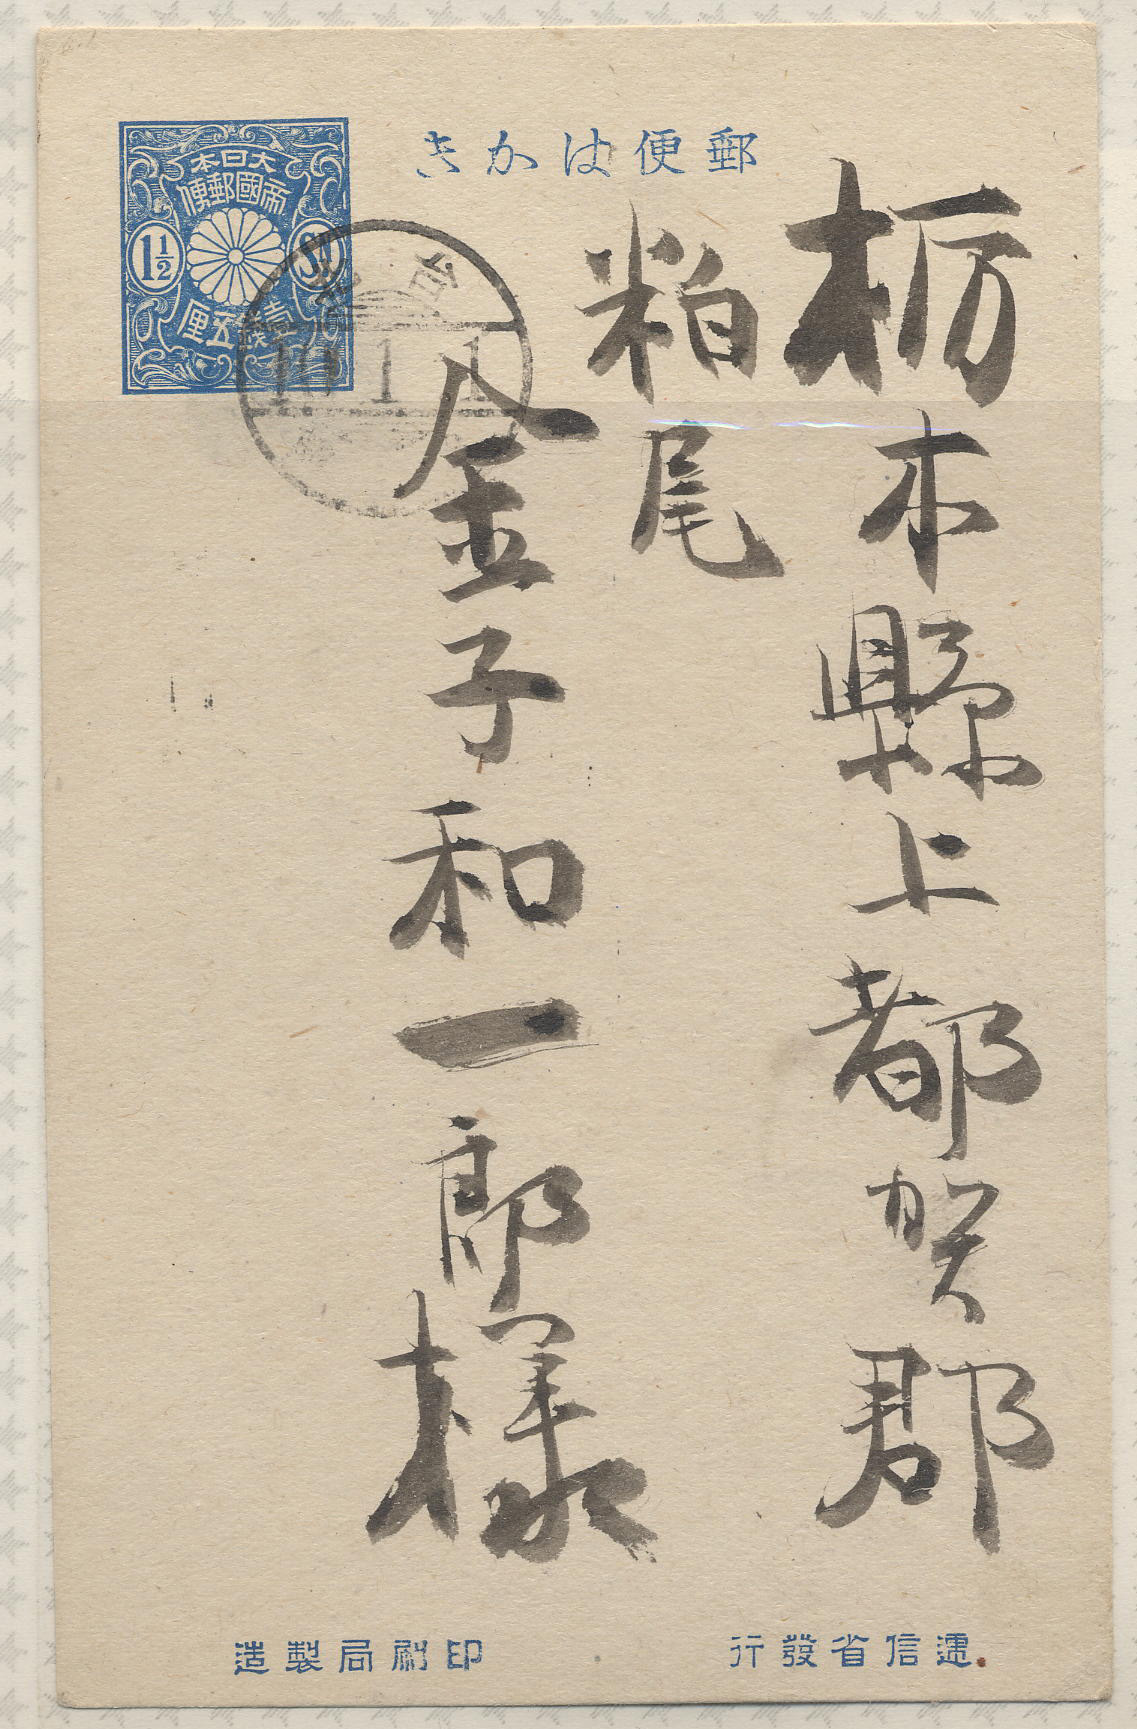 郵便はかき
大日本
帝國郵便
1½
Sn
壹錢五厘
1 1
栃木縣上都賀郡
粕尾
金子和一郎様
逓信省發行
印刷局製造